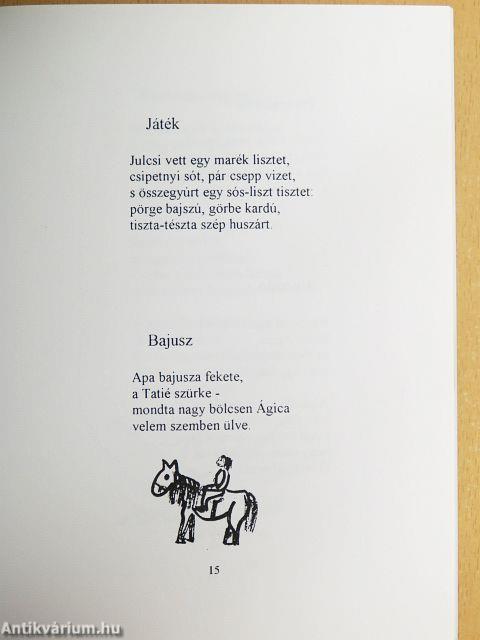 Játék
Julcsi vett egy marék lisztet,
csipetnyi sót, pár csepp vizet,
s összegyúrt egy sós-liszt tisztet:
pörge bajszú, görbe kardú,
tiszta-tészta szép huszárt.
Bajusz
Apa bajusza fekete,
a Tatié szürke -
mondta nagy bölcsen Ágica
velem szemben ülve.
15
Antikvárium.hu